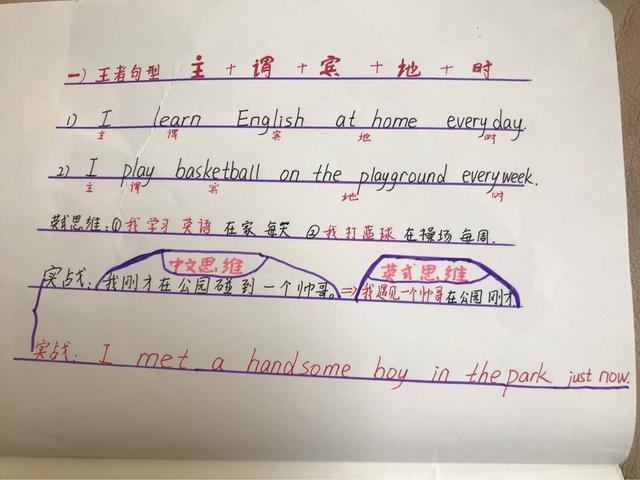 一）王者句型 主 + 谓 + 宾 + 地 + 时
1) I learn English at home everyday.
主 谓 宾 地 时
2) I play basketball on the playground everyweek.
主 谓 宾 地 时
英式思维：①我 学习 英语 在家 每天 ②我 打 蓝球 在操场 每周.
中文思维 英式思维
实战：我刚才在公园碰到一个帅哥。⇒我遇见一个帅哥在公园刚才
实战：I met a handsome boy in the park just now.